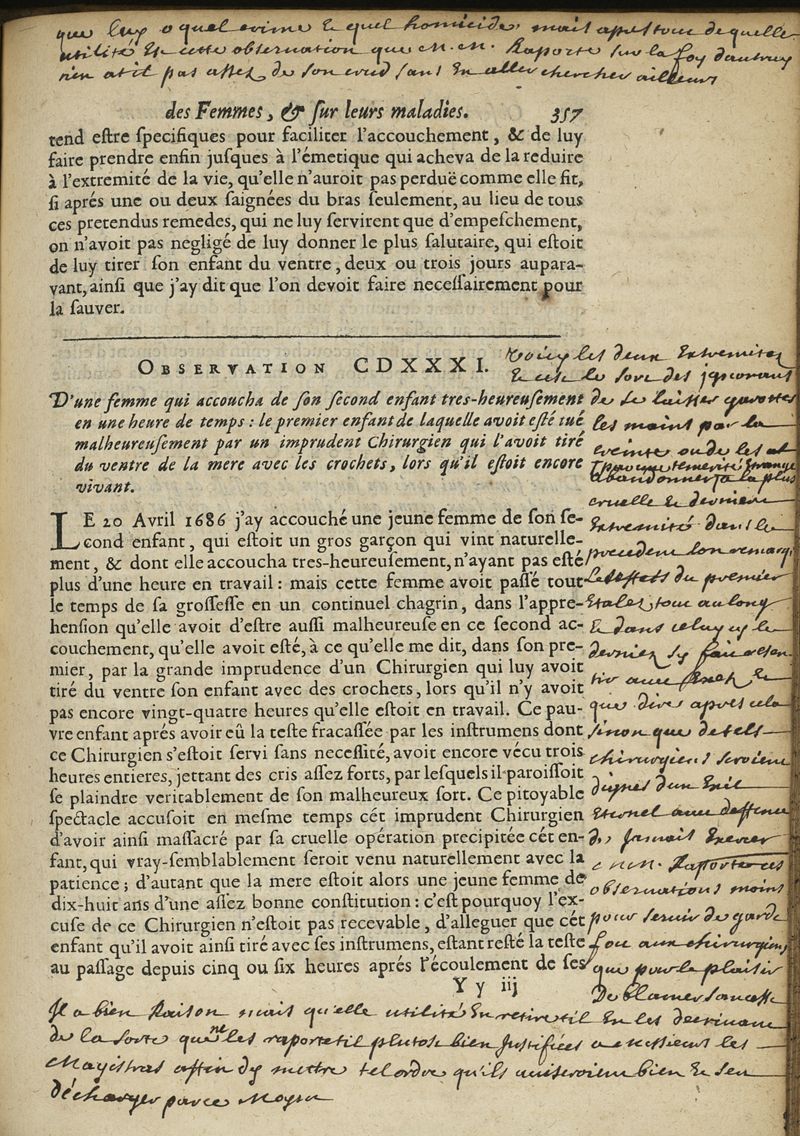 que luy o quel crime & quel homicide mais apres tout de quelle
utilité est cette observation que m. m. Raporte sur la foy dautruy
rien atil pas assez de son crud sans en aller chercher ailleurs
des Femmes, & ſur leurs maladies. 357
tend eſtre ſpecifiques pour faciliter l'accouchement, & de luy
faire prendre enfin juſques à l'émetique qui acheva de la reduire
à l'extremité de la vie, qu'elle n'auroit pas perduë comme elle fit,
ſi aprés une ou deux ſaignées du bras ſeulement, au lieu de tous
ces pretendus remedes, qui ne luy ſervirent que d'empeſchement,
on n'avoit pas negligé de luy donner le plus ſalutaire, qui eſtoit
de luy tirer ſon enfant du ventre, deux ou trois jours aupara-
vant, ainſi que j'ay dit que l'on devoit faire neceſſairement pour
la ſauver.
OBSERVATION CDXXXI.
D'une femme qui accoucha de ſon ſecond enfant tres-heureuſement
en une heure de temps : le premier enfant de laquelle avoit eſté tué
malheureuſement par un imprudent Chirurgien qui l'avoit tiré
du ventre de la mere avec les crochets, lors qu'il eſtoit encore
vivant.
LE 20 Avril 1686 j'ay accouché une jeune femme de ſon ſe-
cond enfant, qui eſtoit un gros garçon qui vint naturelle-
ment, & dont elle accoucha tres-heureuſement, n'ayant pas eſté
plus d'une heure en travail : mais cette femme avoit paſſé tout
le temps de ſa groſſeſſe en un continuel chagrin, dans l'appre-
henſion qu'elle avoit d'eſtre auſſi malheureuſe en ce ſecond ac-
couchement, qu'elle avoit eſté, à ce qu'elle me dit, dans ſon pre-
mier, par la grande imprudence d'un Chirurgien qui luy avoit
tiré du ventre ſon enfant avec des crochets, lors qu'il n'y avoit
pas encore vingt-quatre heures qu'elle eſtoit en travail. Ce pau-
vre enfant aprés avoir eû la teſte fracaſſée par les inſtrumens dont
ce Chirurgien s'eſtoit ſervi ſans neceſſité, avoit encore vécu trois
heures entieres, jettant des cris aſſez forts, par leſquels il paroiſſoit
ſe plaindre veritablement de ſon malheureux ſort. Ce pitoyable
ſpectacle accuſoit en meſme temps cét imprudent Chirurgien
d'avoir ainſi maſſacré par ſa cruelle opération precipitée cét en-
fant, qui vray-ſemblablement ſeroit venu naturellement avec la
patience ; d'autant que la mere eſtoit alors une jeune femme de
dix-huit ans d'une aſſez bonne conſtitution : c'eſt pourquoy l'ex-
cuſe de ce Chirurgien n'eſtoit pas recevable, d'alleguer que cét
enfant qu'il avoit ainſi tiré avec ſes inſtrumens, eſtant reſté la teſte
au paſſage depuis cinq ou ſix heures aprés l'écoulement de ſes
Y y iij
Voicy les deux Extremitez
& cest le sort des jgnorants
de se laisser garotter
les mains par la
creinte ou de les
par une temerité Estrange
abandonner a la plus
cruelle & derniere
Extremité dans le
precedent lon remarque
les effets du premier
Etalez tout au long
& dans celuy cy le
dernier sy fait
que dire apres cela
sinon que de tels
chirurgiens seroient
dignes dun Exil
Eternel avec deffence
de jamais Exercer
m. Raporte ces
observations moins
pour servir de garde
fou aux chirurgiens
que pour le plaisir
De blamer sans cesse
Il a bien Raison mais qu'elle utilité En retire til En les decrivant
de la sorte que ne les raportetil plutost bien Justifiées a messieurs les
Magistras affin dy mettre tel ordre qu'ils aviseroient bien & sen
décharger par ce Moyen